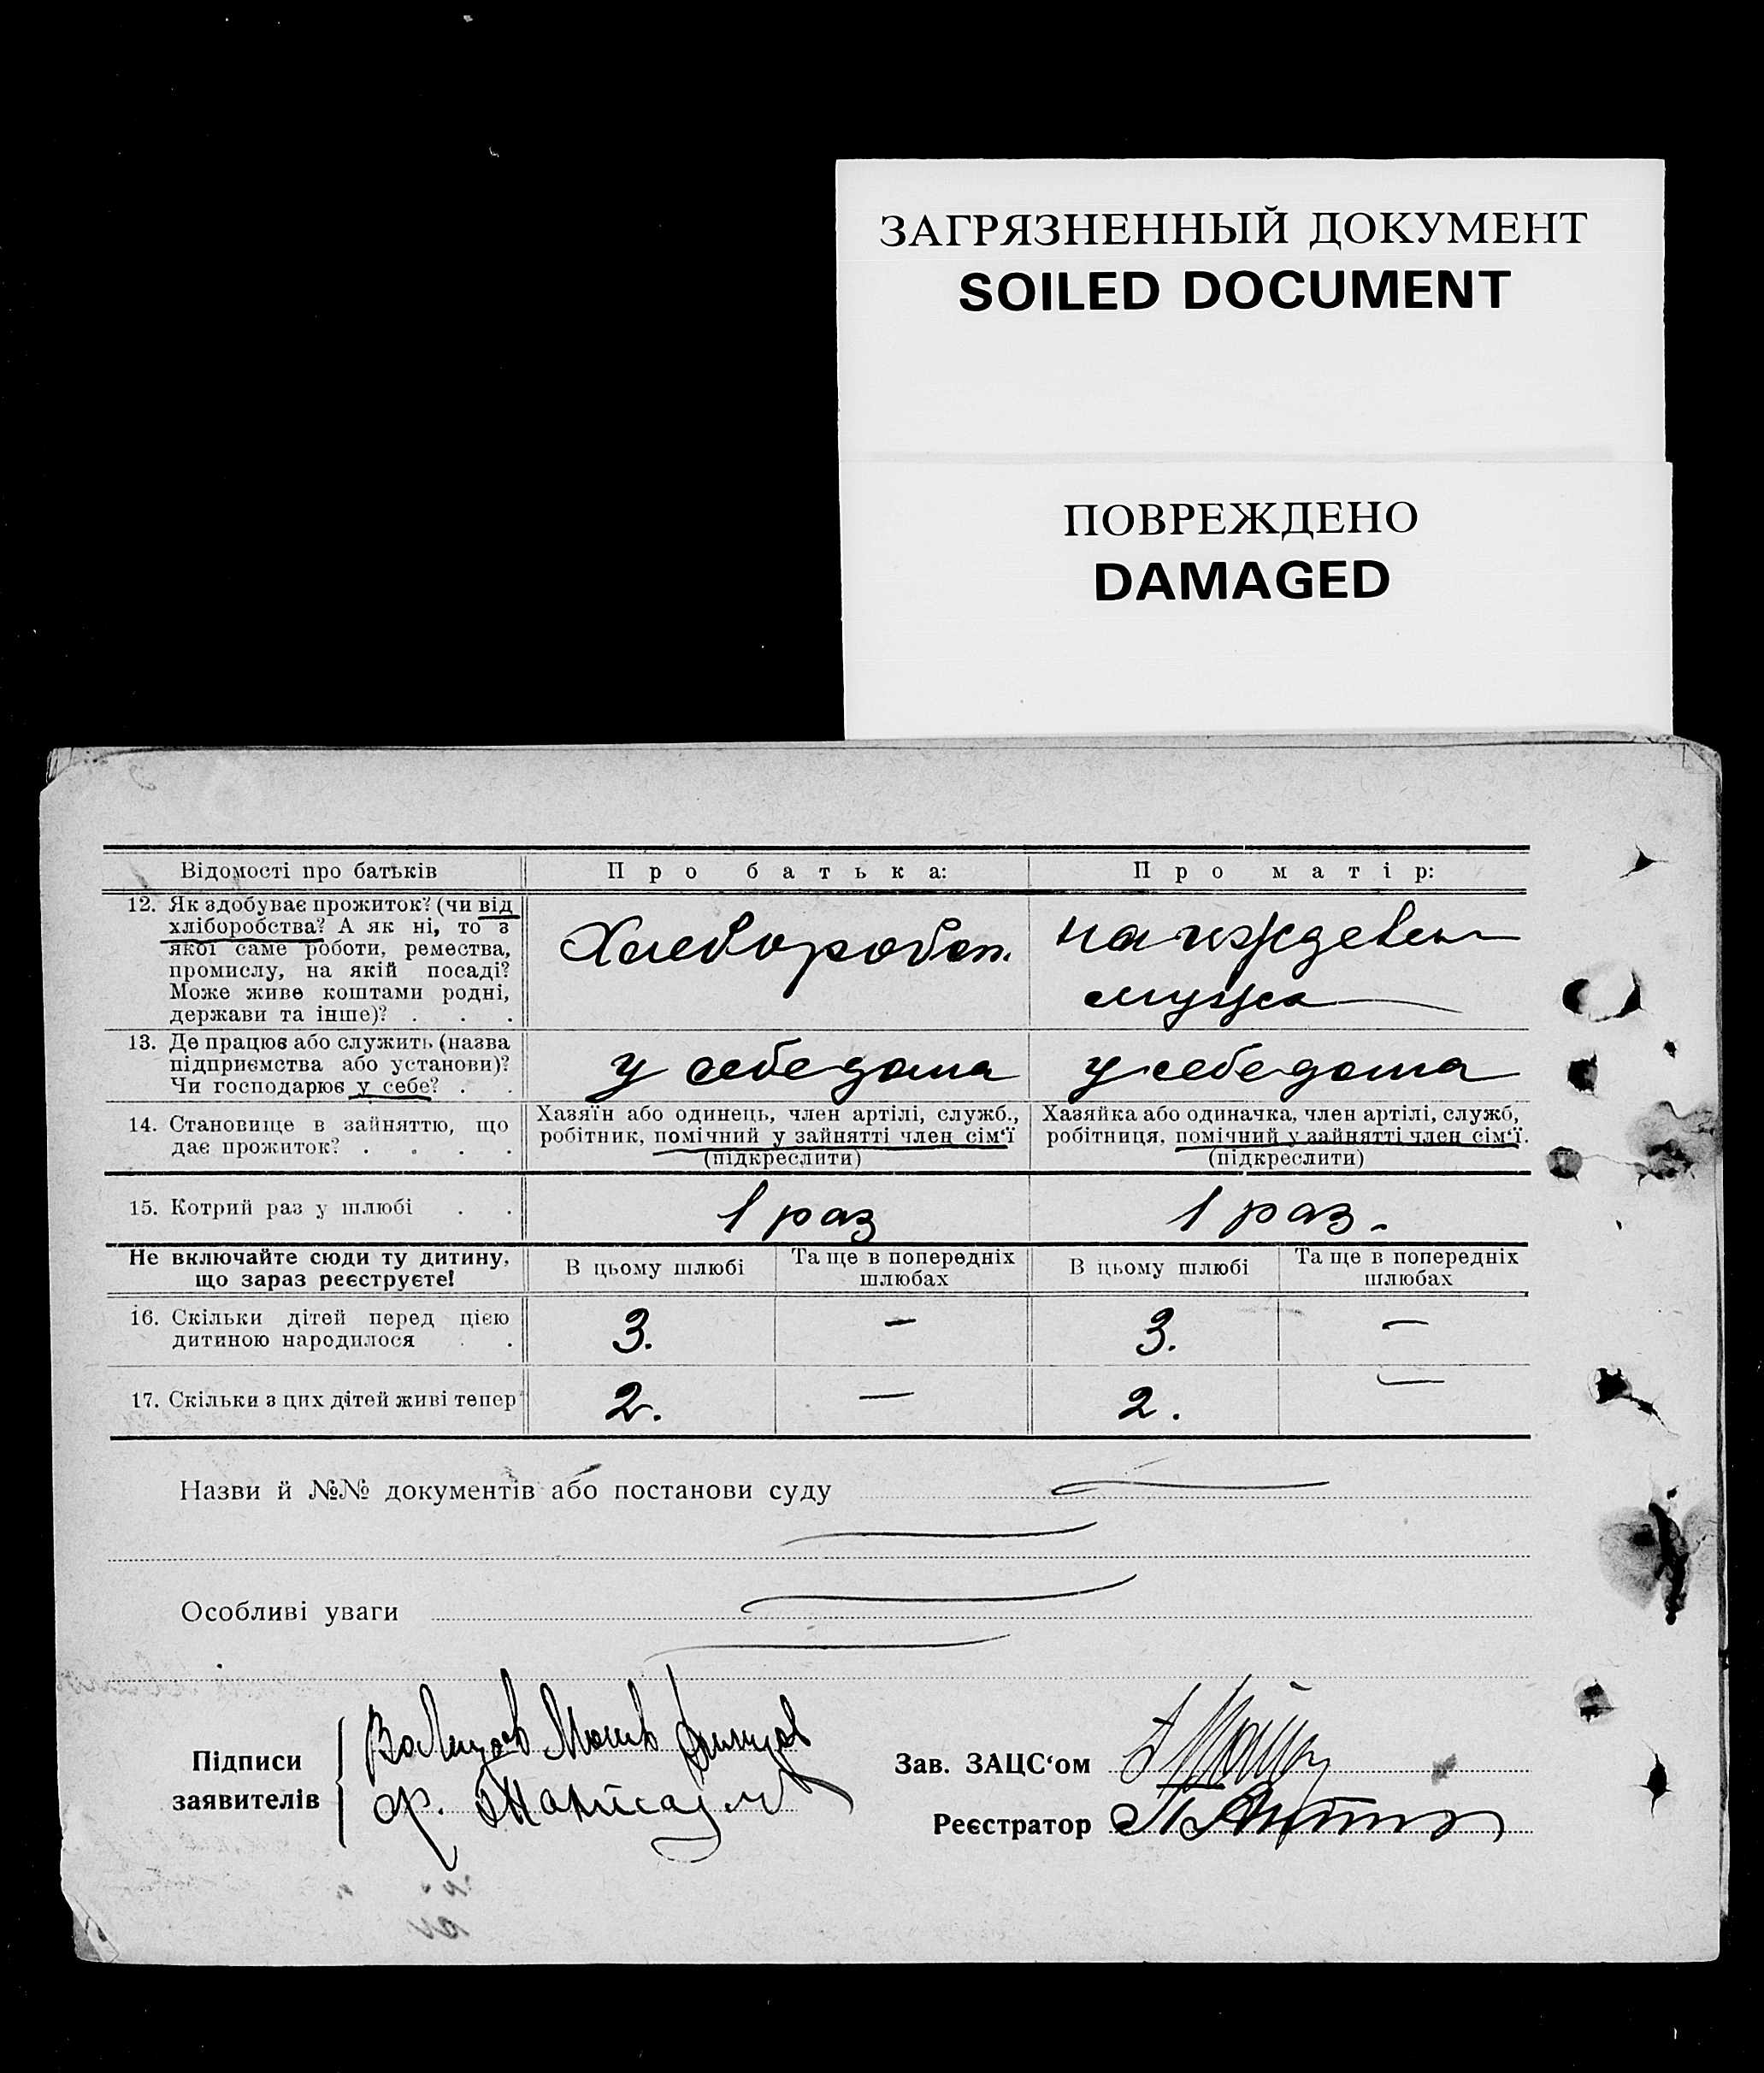 ЗАГРЯЗНЕННЫЙ ДОКУМЕНТ
SOILED DOCUMENT
ПОВРЕЖДЕНО
DAMAGED
Відомості про батьків
Про батька:
Про матір:
12. Як здобуває прожиток? (чи від
хліборобства? А як ні, то з
якої саме роботи, ремества,
промислу, на якій посаді?
Може живе коштами родні,
держави та інше)? . . .
Хлеборобст.
на иждевен
мужа
13. Де працює або служить (назва
підприємства або установи)?
Чи господарює у себе? . .
у себе дома
у себе дома
14. Становище в зайняттю, що
дає прожиток? . . . .
Хазяїн або одинець, член артілі, служб.,
робітник, помічний у зайнятті член сім'ї
(підкреслити)
Хазяйка або одиначка, член артілі, служб,
робітниця, помічний у зайнятті член сім'ї.
(підкреслити)
15. Котрий раз у шлюбі . .
1 раз
1 раз.
Не включайте сюди ту дитину,
що зараз реєструєте!
В цьому шлюбі
Та ще в попередніх
шлюбах
В цьому шлюбі
Та ще в попередніх
шлюбах
16. Скільки дітей перед цією
дитиною народилося . .
3.
—
3.
—
17. Скільки з цих дітей живі тепер
2.
—
2.
—
Назви й №№ документів або постанови суду
Особливі уваги
Підписи
заявителів
Зав. ЗАЦС'ом
Реєстратор